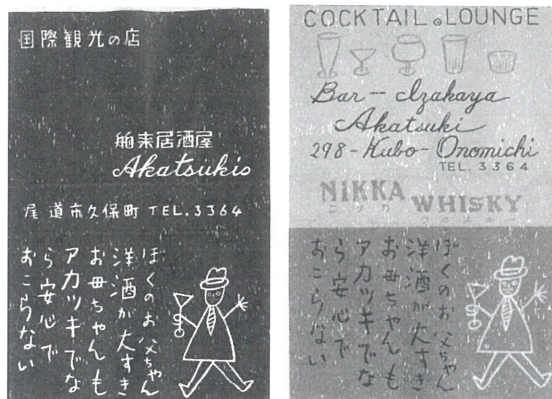 国際観光の店
舶来居酒屋
Akatsukis
尾道市久保町 TEL.3364
ぼくのお父ちゃん
洋酒が大すき
お母ちゃんも
アカツキでな
ら安心で
おこらない
COCKTAIL LOUNGE
Bar-Izakaya
Akatsuki
298-Kubo-Onomichi
TEL. 3364
NIKKA WHISKY
ニッカ
ぼくのお父ちゃん
洋酒が大すき
お母ちゃんも
アカツキでな
ら安心で
おこらない